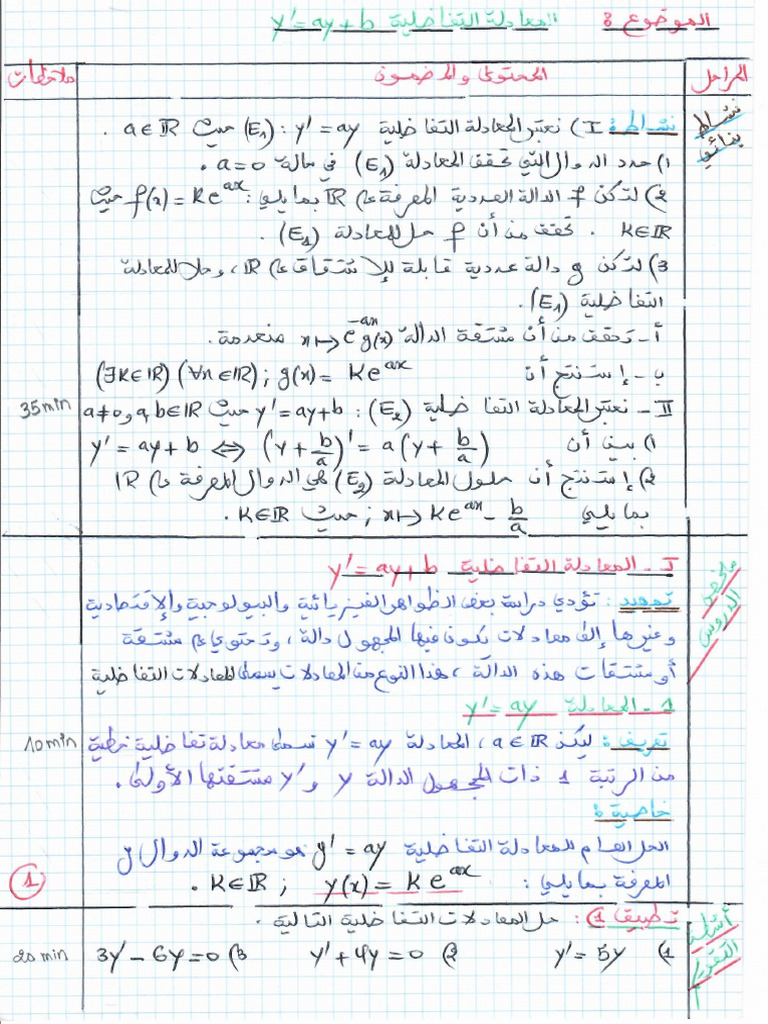 الموضوع : المعادلة التفاضلية y' = ay + b
المراحل المحتوى والمضمون ملاحظات
نشاط بنائي
نشاط: I) نعتبر المعادلة التفاضلية (E₁): y' = ay حيث a∈ℝ.
1) حدد الدوال التي تحقق المعادلة (E₁) في حالة a=0.
2) لتكن f الدالة العددية المعرفة على ℝ بمايلي: f(x) = Ke^{ax} حيث
K∈ℝ. تحقق من أن f حل للمعادلة (E₁).
3) لتكن g دالة عددية قابلة للإشتقاق على ℝ، وحلا للمعادلة
التفاضلية (E₁).
أ- تحقق من أن مشتقة الدالة x↦e^{-ax}g(x) منعدمة.
ب- إستنتج أن (∃K∈ℝ)(∀x∈ℝ); g(x) = Ke^{ax}
35min
II- نعتبر المعادلة التفاضلية (E₂): y' = ay+b حيث a,b∈ℝ و a≠0
1) بين أن y' = ay+b ⇔ (y + b/a)' = a(y + b/a)
2) إستنتج أن حلول المعادلة (E₂) هي الدوال المعرفة على ℝ
بمايلي x↦Ke^{ax} - b/a ; حيث K∈ℝ.
ملخص الدروس
I- المعادلة التفاضلية y' = ay + b
تمهيد: تؤدي دراسة بعض الظواهر الفيزيائية والبيولوجية والإقتصادية
وغيرها إلى معادلات يكون فيها المجهول دالة، وتحتوي على مشتقة
أو مشتقات هذه الدالة، هذا النوع من المعادلات يسمى المعادلات التفاضلية
1- المعادلة y' = ay
10min
تعريف: ليكن a∈ℝ، المعادلة y' = ay تسمى معادلة تفاضلية خطية
من الرتبة 1 ذات المجهول الدالة y و y' مشتقتها الأولى.
خاصية:
الحل العام للمعادلة التفاضلية y' = ay هو مجموعة الدوال y
المعرفة بمايلي: y(x) = Ke^{ax} ; K∈ℝ.
1
أسئلة التقويم
تطبيق 1): حل المعادلات التفاضلية التالية.
20min
1) y' = 5y 2) y' + 4y = 0 3) 3y' - 6y = 0